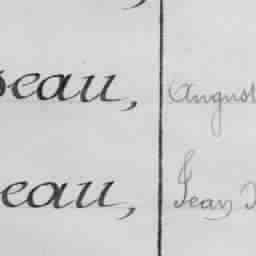 eau, August
eau, Jean